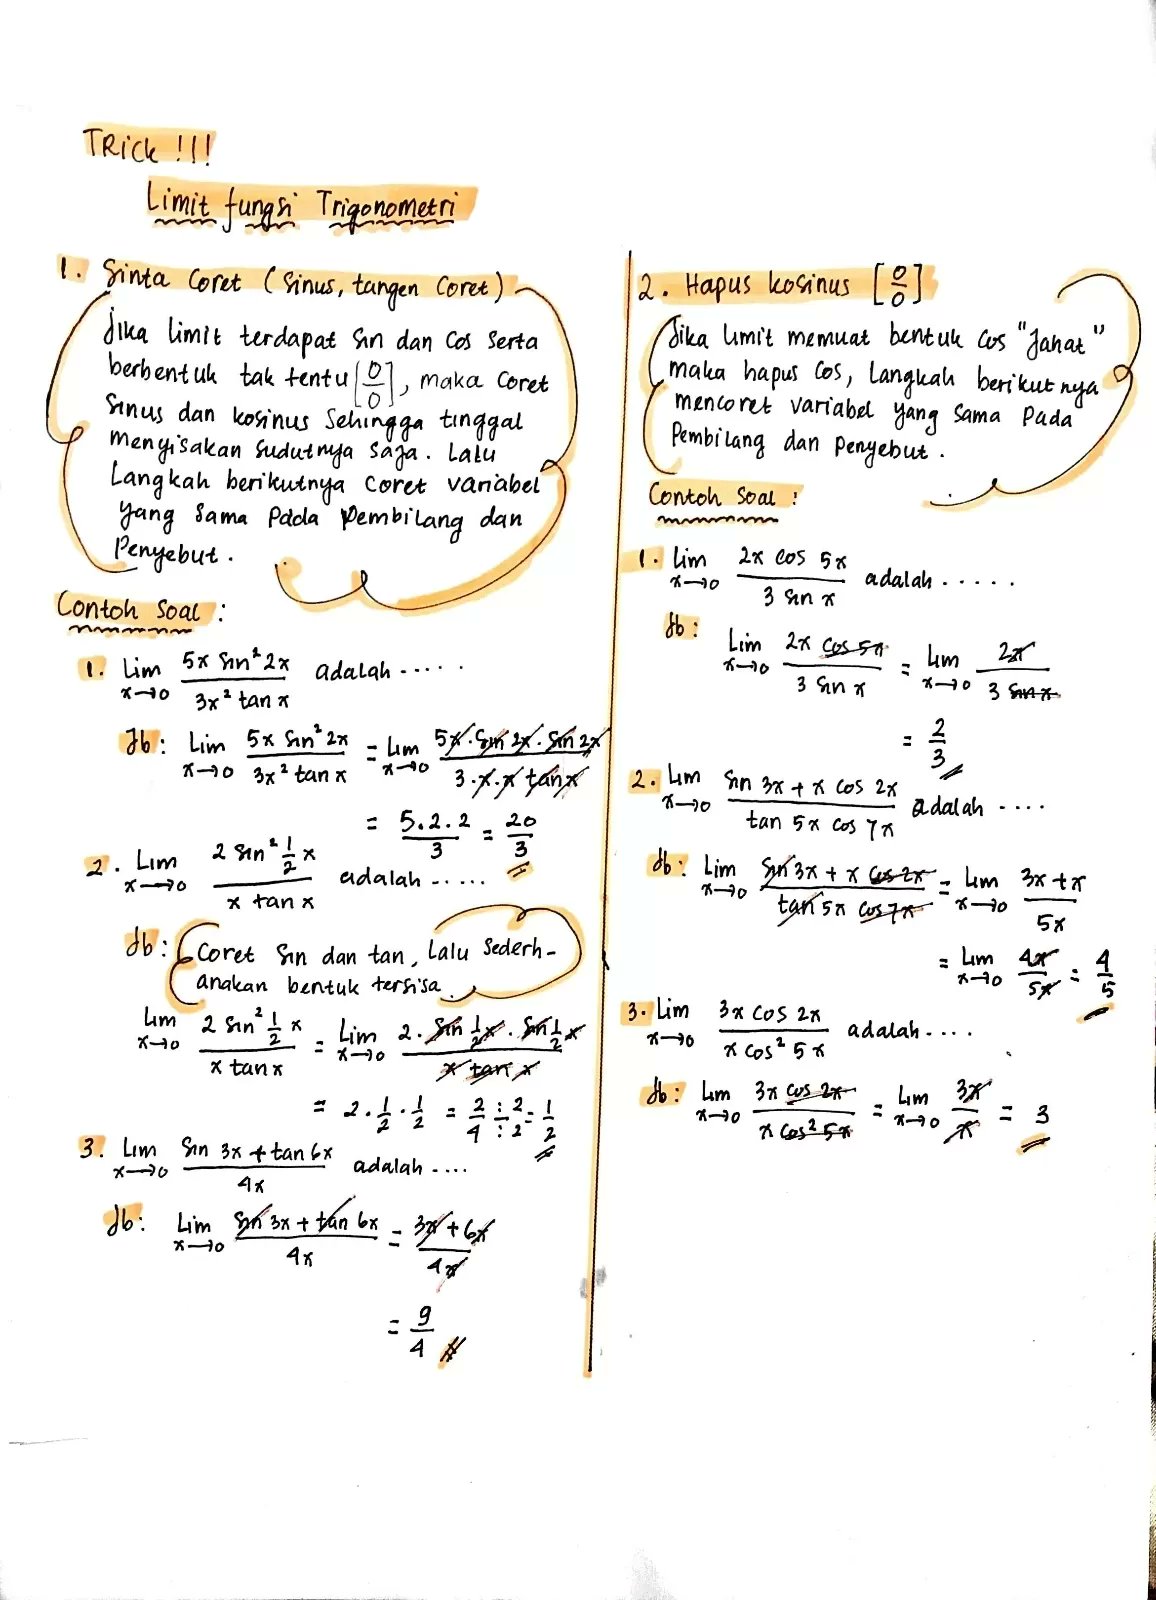 TRick !!!
Limit fungsi Trigonometri
1. Sinta Coret (Sinus, tangen Coret)
Jika limit terdapat Sin dan Cos Serta
berbentuk tak tentu [0/0], maka Coret
Sinus dan kosinus Sehingga tinggal
menyisakan Sudutnya Saja. Lalu
Langkah berikutnya Coret variabel
yang Sama Pada Pembilang dan
Penyebut.
Contoh Soal :
1. Lim x→0 5x Sin² 2x / 3x² tan x adalah .....
Jb : Lim x→0 5x Sin² 2x / 3x² tan x = Lim x→0 5x . Sin 2x . Sin 2x / 3 . x . x tan x
= 5.2.2 / 3 = 20/3
2. Lim x→0 2 Sin² 1/2 x / x tan x adalah .....
Jb : Coret Sin dan tan, Lalu Sederh-
anakan bentuk tersisa.
Lim x→0 2 Sin² 1/2 x / x tan x = Lim x→0 2 . Sin 1/2 x . Sin 1/2 x / x tan x
= 2 . 1/2 . 1/2 = 2/4 : 2/: 2 = 1/2
3. Lim x→0 Sin 3x + tan 6x / 4x adalah ....
Jb : Lim x→0 Sin 3x + tan 6x / 4x = 3x + 6x / 4x
= 9/4
2. Hapus kosinus [0/0]
Jika Limit memuat bentuk Cos "Jahat"
maka hapus Cos, Langkah berikutnya
mencoret variabel yang Sama Pada
Pembilang dan Penyebut.
Contoh Soal :
1. Lim x→0 2x cos 5x / 3 Sin x adalah .....
Jb : Lim x→0 2x cos 5x / 3 Sin x = Lim x→0 2x / 3 Sin x
= 2/3
2. Lim x→0 Sin 3x + x cos 2x / tan 5x cos 7x adalah ....
Jb : Lim x→0 Sin 3x + x cos 2x / tan 5x cos 7x = Lim x→0 3x + x / 5x
= Lim x→0 4x / 5x = 4/5
3. Lim x→0 3x cos 2x / x cos² 5x adalah ....
Jb : Lim x→0 3x cos 2x / x cos² 5x = Lim x→0 3x / x = 3